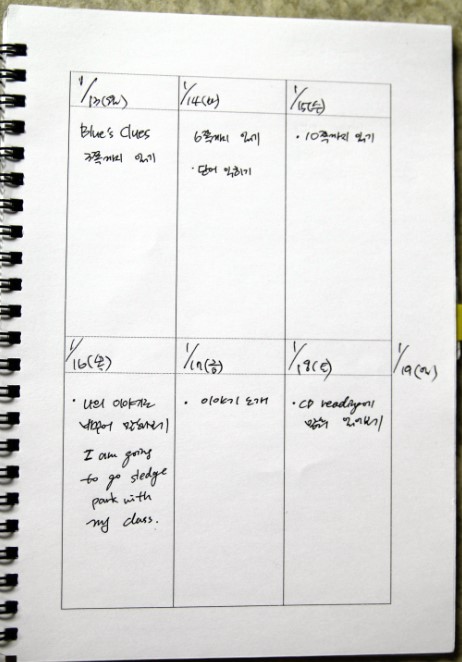 1/13(월)
Blue's Clues
3쪽까지 읽기
1/14(화)
6쪽까지 읽기
· 단어 익히기
1/15(수)
· 10쪽까지 읽기
1/16(목)
· 나의 이야기로
I am going
to go sledge
park with
my class.
1/17(금)
· 이야기 소개
1/18(토)
· CD reading에
맞춰 읽어보기
1/19(일)